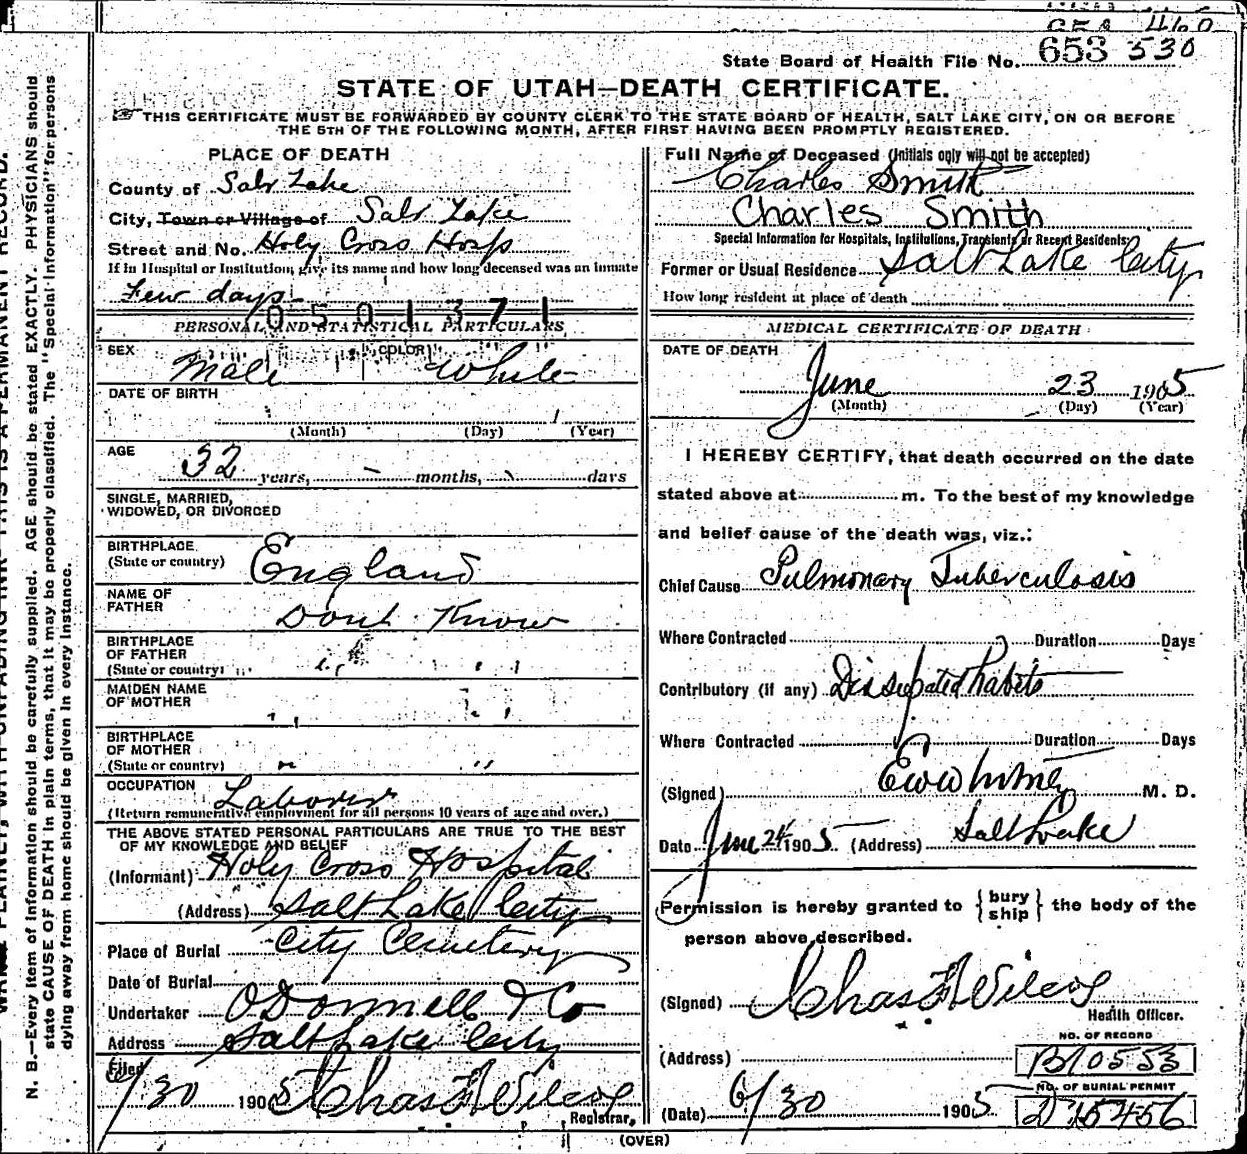 State Board of Health File No. 653 530
STATE OF UTAH—DEATH CERTIFICATE.
THIS CERTIFICATE MUST BE FORWARDED BY COUNTY CLERK TO THE STATE BOARD OF HEALTH, SALT LAKE CITY, ON OR BEFORE
THE 5TH OF THE FOLLOWING MONTH, AFTER FIRST HAVING BEEN PROMPTLY REGISTERED.
PLACE OF DEATH
County of Salt Lake
City, Town or Village of Salt Lake
Street and No. Holy Cross Hosp
If in Hospital or Institution, give its name and how long deceased was an inmate
Few days
0501371
PERSONAL AND STATISTICAL PARTICULARS
SEX Male COLOR White
DATE OF BIRTH
(Month) (Day) (Year)
AGE
32 years, — months, days
SINGLE, MARRIED,
WIDOWED, OR DIVORCED
BIRTHPLACE
(State or country) England
NAME OF
FATHER Dont Know
BIRTHPLACE
OF FATHER
(State or country) " "
MAIDEN NAME
OF MOTHER " "
BIRTHPLACE
OF MOTHER
(State or country) " "
OCCUPATION Laborer
(Return remunerative employment for all persons 10 years of age and over.)
THE ABOVE STATED PERSONAL PARTICULARS ARE TRUE TO THE BEST
OF MY KNOWLEDGE AND BELIEF
(Informant) Holy Cross Hospital
(Address) Salt Lake City
Place of Burial City Cemetery
Date of Burial
Undertaker ODonnell & Co
Address Salt Lake City
Filed
6/30 1905 Chas F Wilcox
Registrar,
Full Name of Deceased (Initials only will not be accepted)
Charles Smith
Charles Smith
Special Information for Hospitals, Institutions, Transients or Recent Residents:
Former or Usual Residence Salt Lake City
How long resident at place of death
MEDICAL CERTIFICATE OF DEATH
DATE OF DEATH
June 23 1905
(Month) (Day) (Year)
I HEREBY CERTIFY, that death occurred on the date
stated above at m. To the best of my knowledge
and belief cause of the death was, viz.:
Chief Cause Pulmonary Tuberculosis
Where Contracted Duration Days
Contributory (if any) Dissipated habits
Where Contracted Duration Days
(Signed) M. D.
Date June 24 1905 (Address) Salt Lake
Permission is hereby granted to {bury
ship} the body of the
person above described.
(Signed) Chas F Wilcox
Health Officer.
NO. OF RECORD
(Address) B10553
NO. OF BURIAL PERMIT
(Date) 6/30 1905 D15456
(OVER)
N. B.—Every item of information should be carefully supplied. AGE should be stated EXACTLY. PHYSICIANS should
state CAUSE OF DEATH in plain terms, that it may be properly classified. The "Special Information" for persons
dying away from home should be given in every instance.